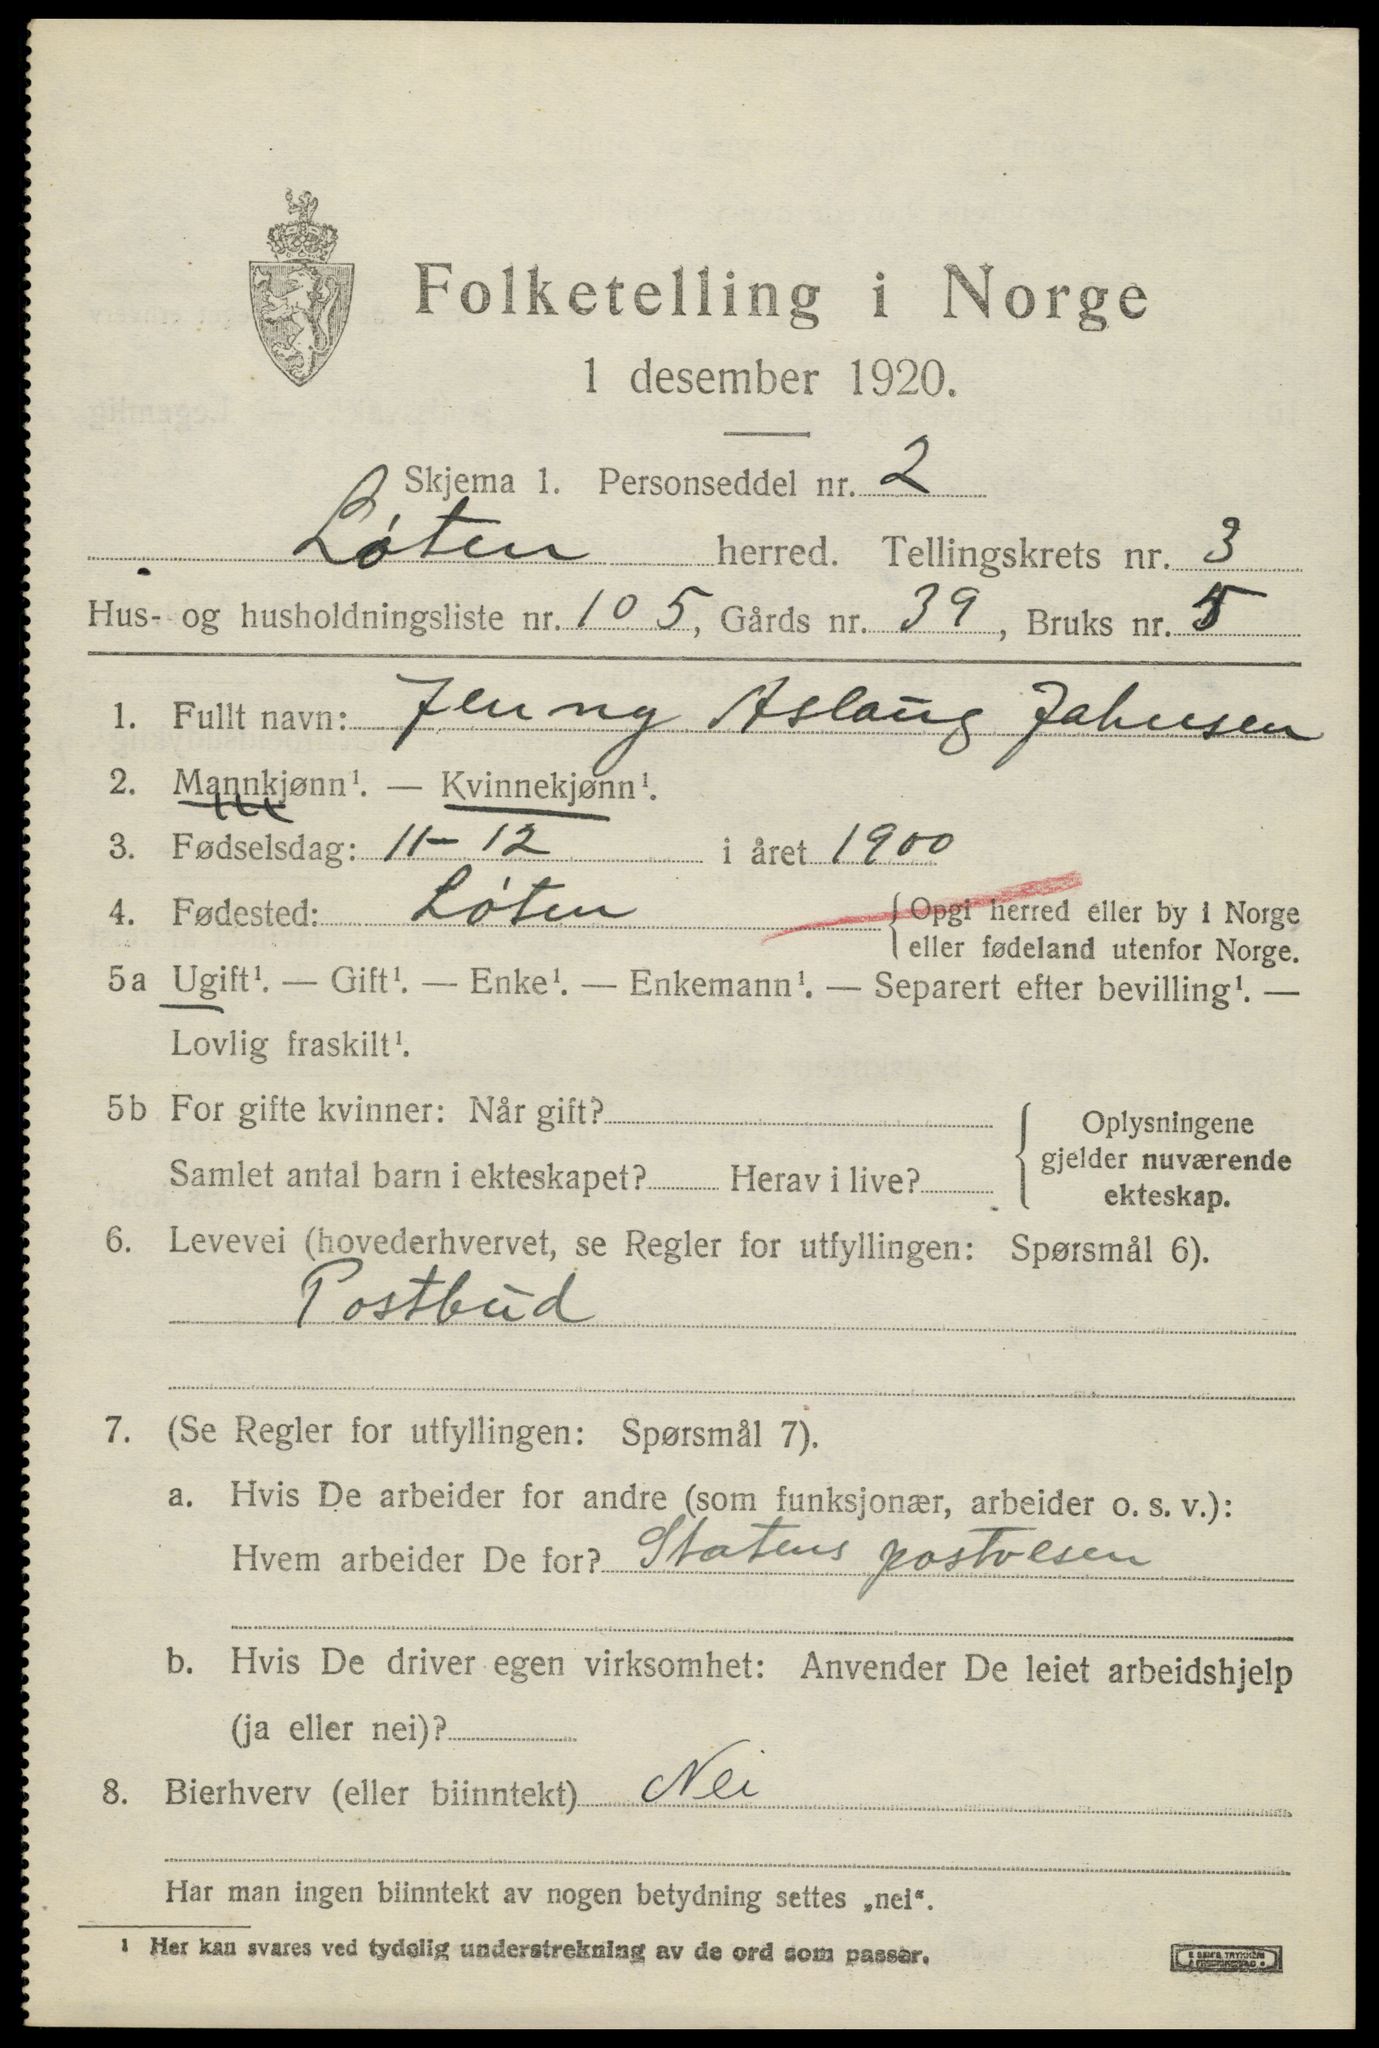 Folketelling i Norge
1 desember 1920.
Skjema 1. Personseddel nr. 2
Løten herred. Tellingskrets nr. 3
Hus- og husholdningsliste nr. 105, Gårds nr. 39, Bruks nr. 5
1. Fullt navn: Jenny Aslaug Johnsen
2. Mannkjønn¹. — Kvinnekjønn¹.
3. Fødselsdag: 11-12 i året 1900
4. Fødested: Løten {Opgi herred eller by i Norge
eller fødeland utenfor Norge.
5a Ugift¹. — Gift¹. — Enke¹. — Enkemann¹. — Separert efter bevilling¹. —
Lovlig fraskilt¹.
5b For gifte kvinner: Når gift?
Samlet antal barn i ekteskapet? Herav i live?
Oplysningene
gjelder nuværende
ekteskap.
6. Levevei (hovederhvervet, se Regler for utfyllingen: Spørsmål 6).
Postbud
7. (Se Regler for utfyllingen: Spørsmål 7).
a. Hvis De arbeider for andre (som funksjonær, arbeider o. s. v.):
Hvem arbeider De for? Statens postvesen
b. Hvis De driver egen virksomhet: Anvender De leiet arbeidshjelp
(ja eller nei)?
8. Bierhverv (eller biinntekt) Nei
Har man ingen biinntekt av nogen betydning settes „nei“.
¹ Her kan svares ved tydelig understrekning av de ord som passer.